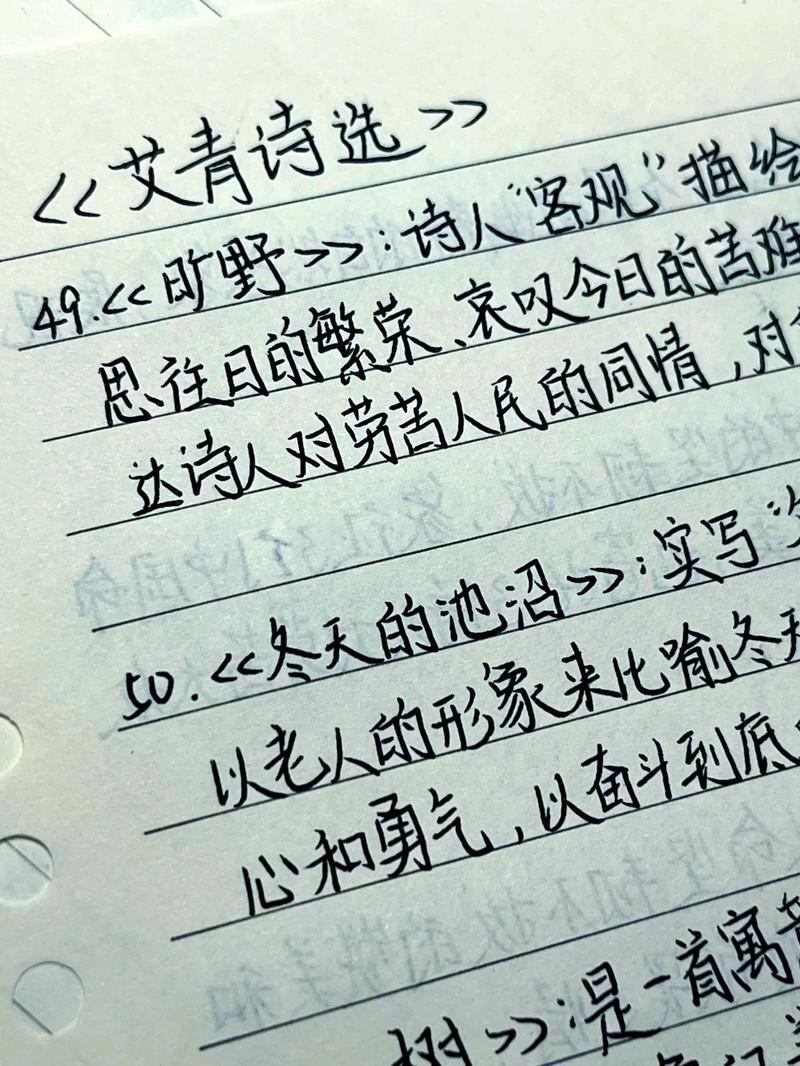 <<艾青诗选>>
49.<<旷野>>:诗人“客观”描绘
思往日的繁荣、哀叹今日的苦难
达诗人对劳苦人民的同情,对
50.<<冬天的池沼>>:实写
以老人的形象来比喻冬天
心和勇气,以奋斗到底
树>>:是一首寓